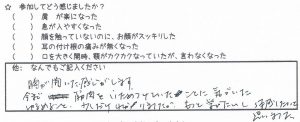 ☆ 参加してどう感じましたか？
( ) 肩 が楽になった
( ) 息が入りやすくなった
( ) 顔を触っていないのに、お顔がスッキリした
( ) 耳の付け根の痛みが無くなった
( ) 口を大きく開時、顎がカクカクなっていたが、言わなくなった
他: なんでもご記入ください
胸が開いた感じがします。
今まで 筋肉をいためつけていたことに気がいた
ゆるめること、
思いました